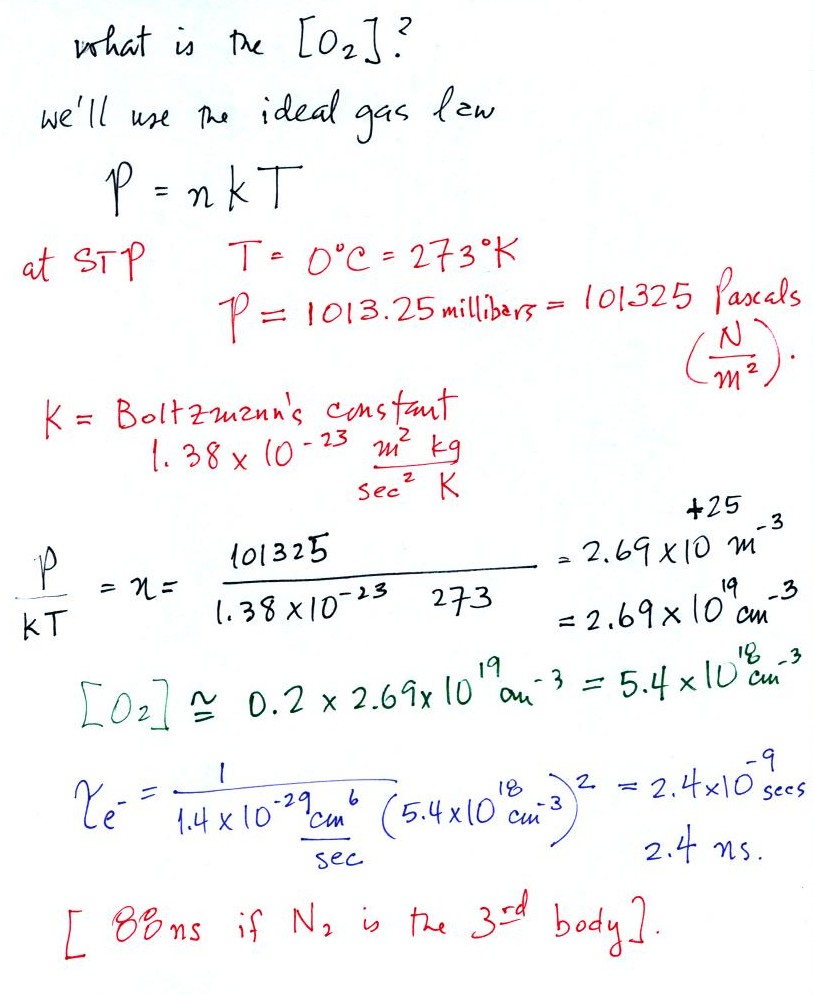 what is the [O₂]?
we'll use the ideal gas law
P = n k T
at STP T = 0°C = 273°K
P = 1013.25 millibars = 101325 Pascals
(N/m²).
K = Boltzmann's constant
1.38 x 10⁻²³ m² kg / sec² K
P/kT = n = 101325 / 1.38 x 10⁻²³ 273 = 2.69 x 10⁺²⁵ m⁻³
= 2.69 x 10¹⁹ cm⁻³
[O₂] ≅ 0.2 x 2.69 x 10¹⁹ cm⁻³ = 5.4 x 10¹⁸ cm⁻³
τe⁻ = 1 / 1.4 x 10⁻²⁹ cm⁶/sec (5.4 x 10¹⁸ cm⁻³)² = 2.4x10⁻⁹ secs
2.4 ns.
[ 88 ns if N₂ is the 3rd body].